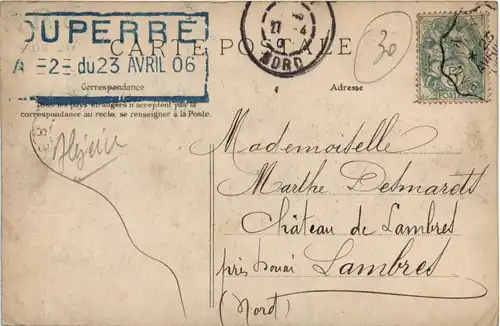 DUPERRÉ
A =2= du 23 AVRIL 06
CARTE POSTALE
30
27 4
NORD
Correspondance
Adresse
pays étrangers n'acceptent pas la
correspondance au recto, se renseigner à la Poste.
Algérie
Mademoiselle
Marthe Desmarets
Château de Lambres
près Douai Lambres
(Nord)